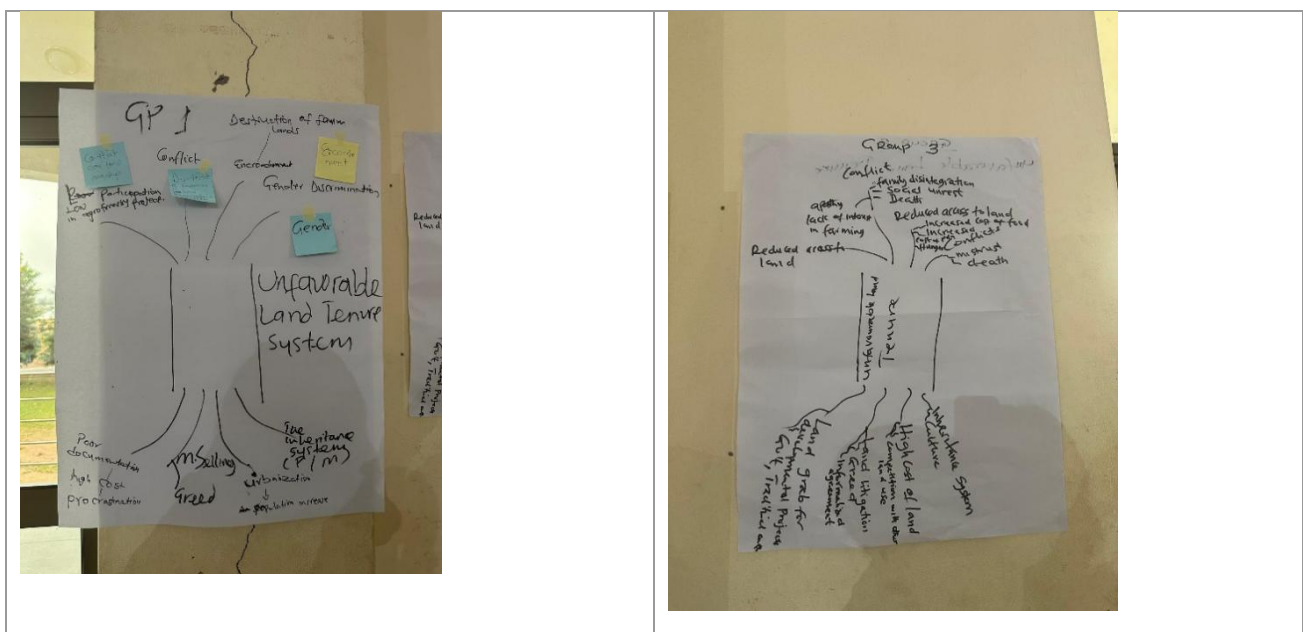 GP 1
Destruction of farm
lands
Conflict
Encroachment
Gender Discrimination
Low participation
in agroforestry project
Gender
Unfavorable
Land Tenure
System
Poor
documentation
high cost
procrastination
Selling
Greed
Urbanization
population increase
inheritance
system
(P/M)
Reduced
land
Group 3
Conflict
family disintegration
Social unrest
Death
apathy
lack of interest
in farming
Reduced access to
land
Reduced access to land
Increased cost of food
Increased
Hunger
Conflicts
mistrust
death
Unfavourable land
Tenure
Land grab for
developmental Projects
Land litigation
Greed
Informalized
agreement
High cost of land
Competition with other
land use
Inheritance System
Culture